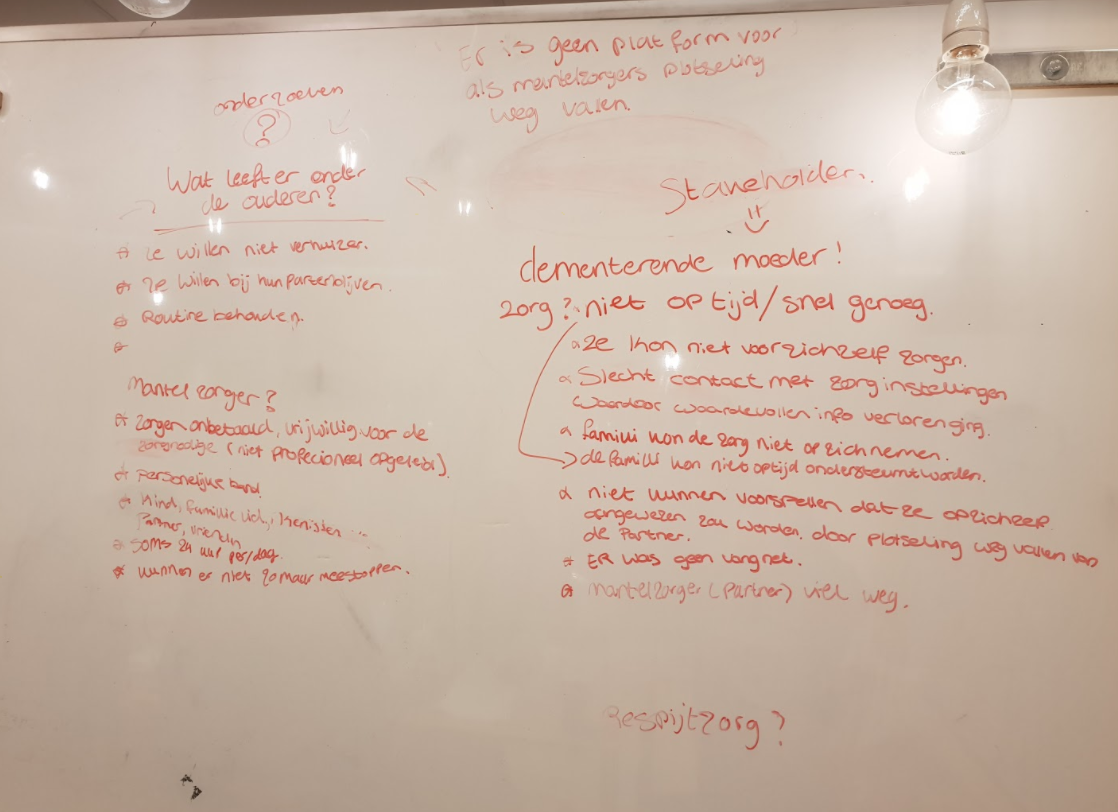 Er is geen platform voor
als mantelzorgers plotseling
weg valen.
onderzoeken
?
Wat leeft er onder
de ouderen?
Ze willen niet verhuizen.
Ze willen bij hun partner blijven.
Routine behouden.
Mantelzorger?
zorgen onbetaald, vrijwillig voor de
zorgnodige (niet profecioneel opgeleid).
Persoonlijke band
Kind, familie lid,
Partner, vrienden
soms 24 uur per/dag.
kunnen er niet zomaar mee stoppen.
Stakeholder.
dementerende moeder!
zorg? niet op tijd/snel genoeg.
ze kon niet voor zichzelf zorgen.
Slecht contact met zorg instellingen
waardoor waardevollen info verloren ging.
familli kon de zorg niet op zich nemen.
de familli kon niet optijd ondersteunt worden.
niet kunnen voorspellen dat ze op zichzelf
aangewezen zou worden, door plotseling weg vallen van
de Partner.
ER was geen vangnet.
mantelzorger (Partner) viel weg.
Respijtzorg?